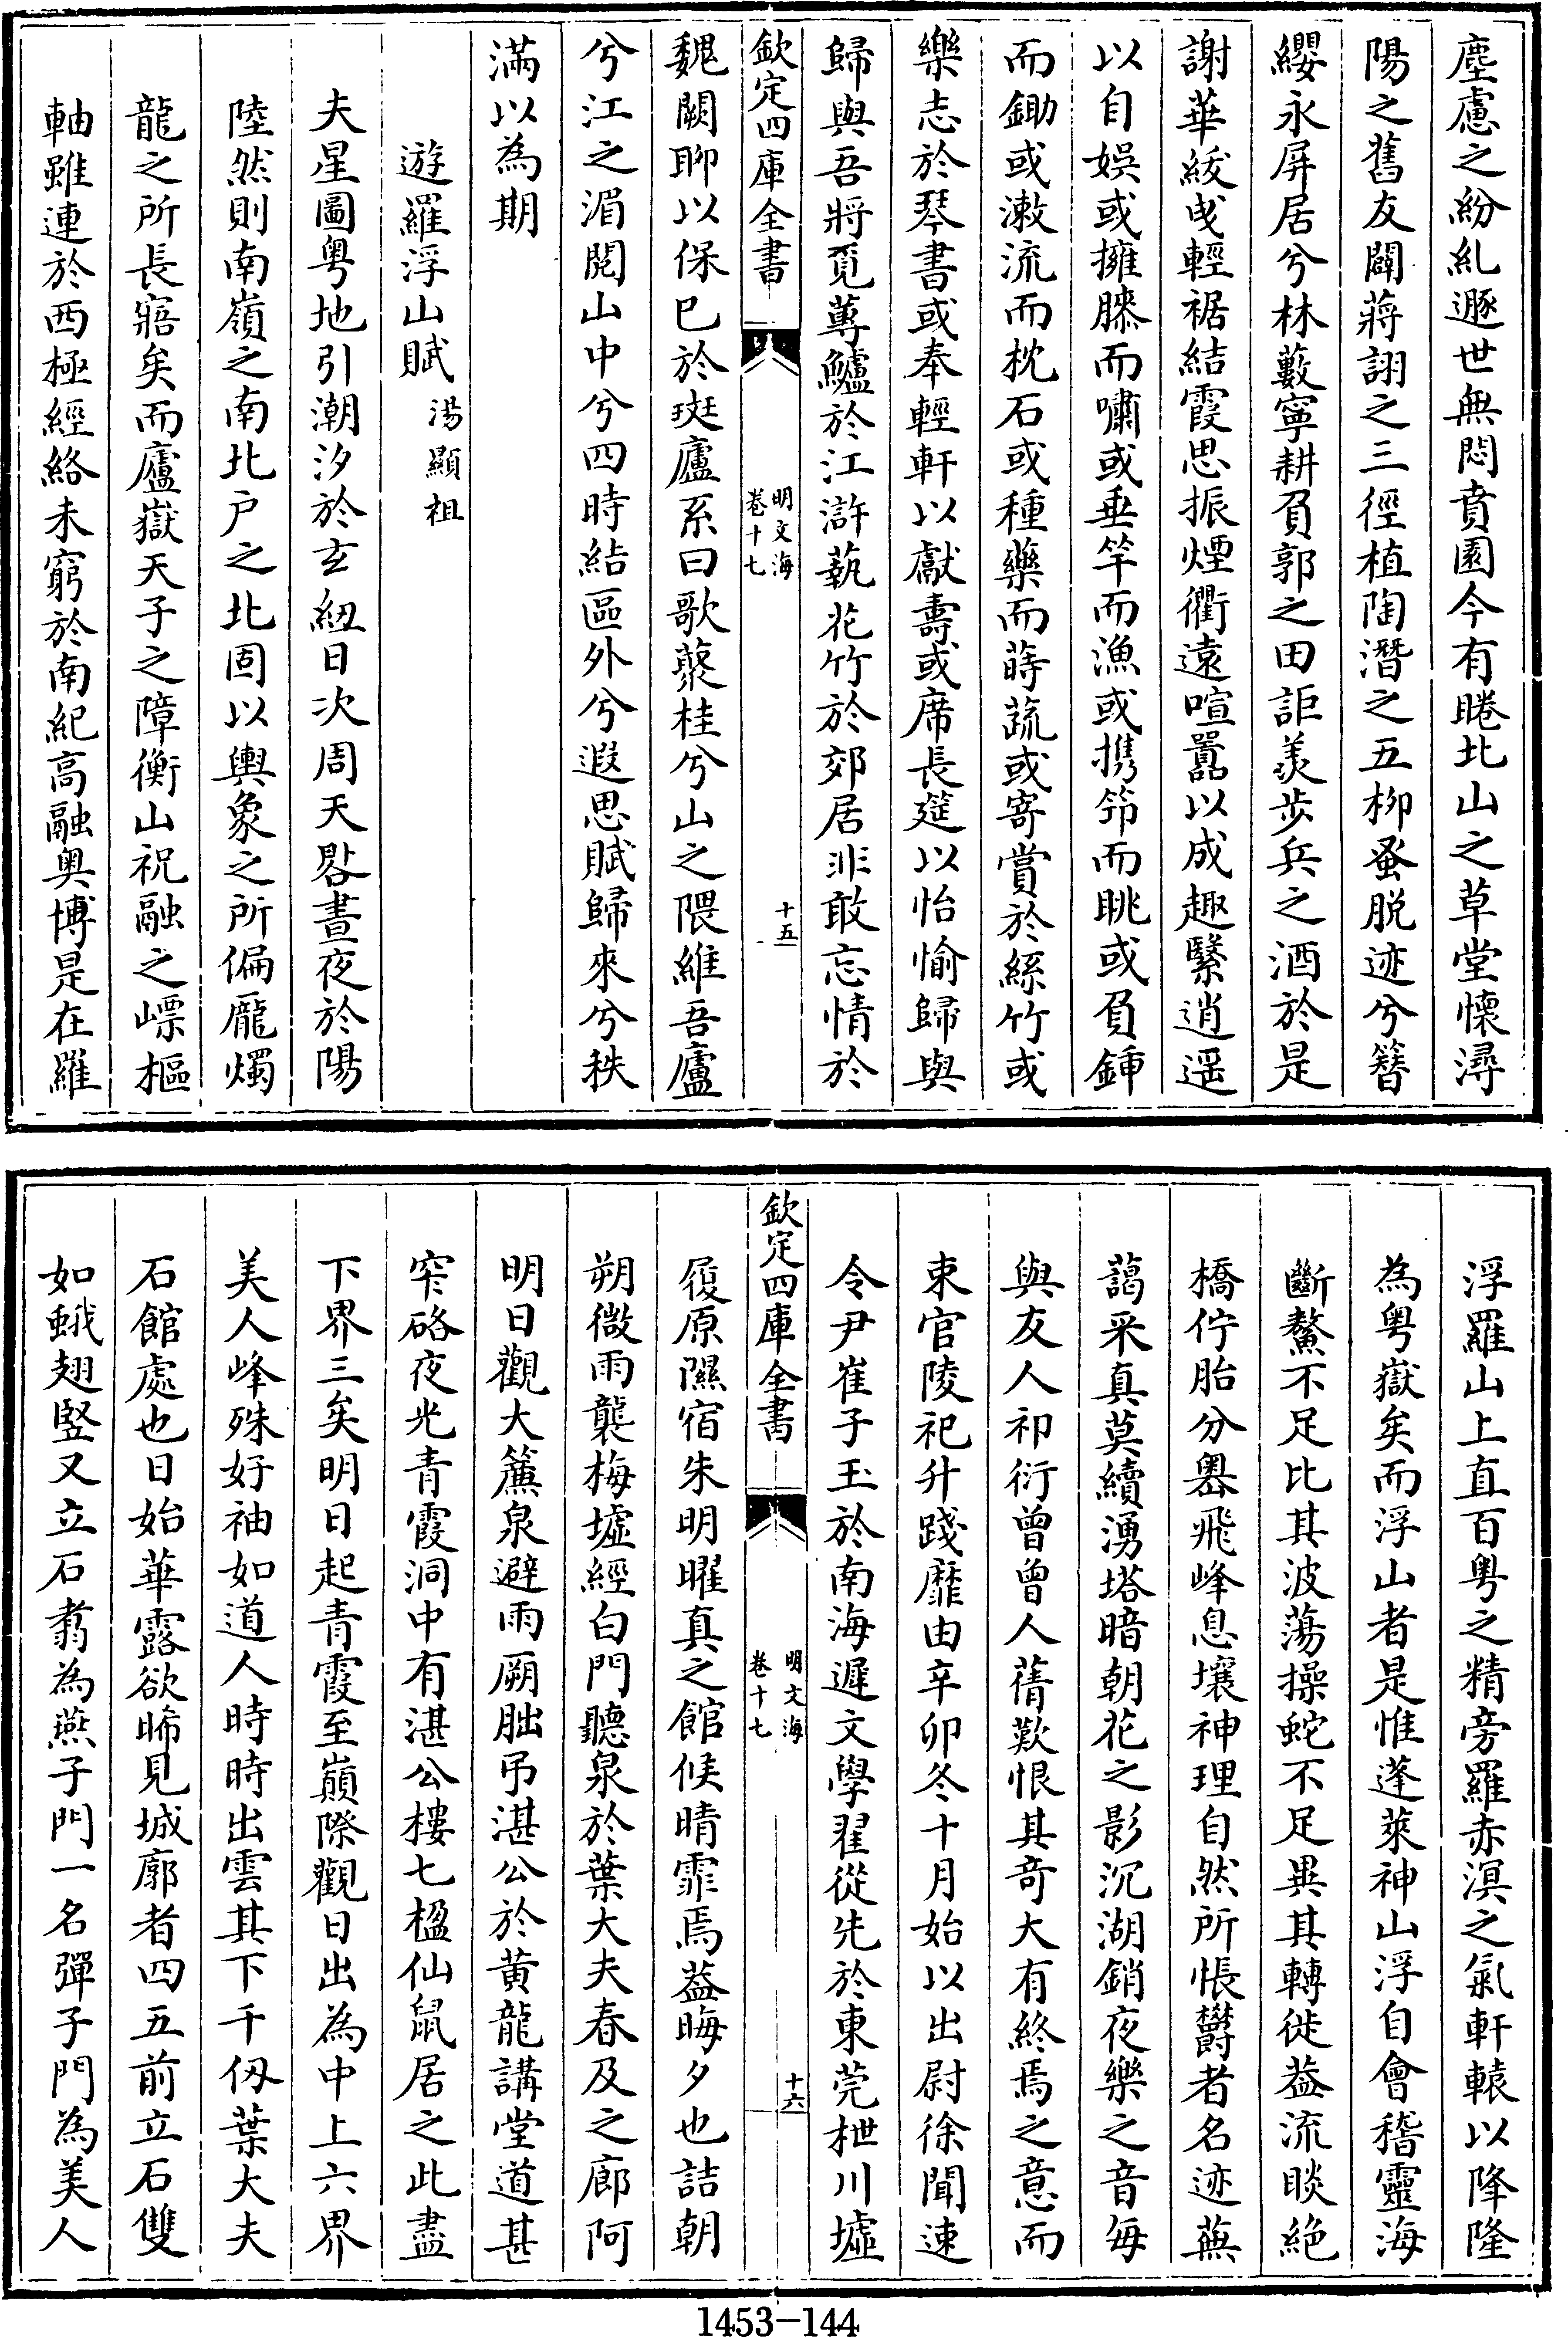 塵慮之紛糺遯世無悶賁園今有睠北山之草堂懷潯
陽之舊友闢蔣詡之三徑植陶潛之五柳蚤脱迹兮簪
纓永屏居兮林藪寧耕負郭之田詎羨步兵之酒於是
謝華紱曳輕裾結霞思振煙衢遠喧囂以成趣緊逍遥
以自娛或擁膝而嘯或垂竿而漁或携笻而眺或負鍤
而鋤或漱流而枕石或種藥而蒔蔬或寄賞於絲竹或
樂志於琴書或奉輕軒以獻壽或席長筵以怡愉歸與
歸與吾將覓蓴鱸於江滸蓺花竹於郊居非敢忘情於
欽定四庫全書
明文海
卷十七
十五
魏闕聊以保已於斑廬系曰歌藂桂兮山之隈維吾廬
兮江之湄閲山中兮四時結區外兮遐思賦歸來兮秩
滿以為期
遊羅浮山賦 湯顯祖
夫星圖粤地引潮汐於玄紐日次周天畧晝夜於陽
陸然則南嶺之南北户之北固以輿象之所偏龎燭
龍之所長寤矣而廬嶽天子之障衡山祝融之嶫樞
軸雖連於西極經絡未窮於南紀高融奥博是在羅
浮羅山上直百粤之精旁羅赤溟之氣軒轅以降隆
為粤嶽矣而浮山者是惟蓬萊神山浮自會稽靈海
斷鰲不足比其波蕩操蛇不足異其轉徙葢流睒絶
橋佇胎分嶴飛峰息壤神理自然所悵欝者名迹蕪
藹采真莫續湧塔暗朝花之影沉湖銷夜樂之音毎
與友人祁衍曾曾人蒨歎恨其竒大有終焉之意而
束官陵祀升踐靡由辛卯冬十月始以出尉徐聞速
令尹崔子玉於南海遲文學翟從先於東莞枻川墟
欽定四庫全書
明文海
卷十七
十六
履原隰宿朱明曜真之館候晴霏焉葢晦夕也詰朝
朔微雨襲梅墟經白門聽泉於葉大夫春及之廊阿
明日觀大簾泉避雨厕朏弔湛公於黄龍講堂道甚
窄硌夜光青霞洞中有湛公樓七楹仙鼠居之此盡
下界三矣明日起青霞至巔際觀日出為中上六界
美人峰殊好袖如道人時時出雲其下千仭葉大夫
石館處也日始華露欲晞見城廓者四五前立石雙
如蛾翅竪又立石翥為燕子門一名彈子門為美人
1453-144